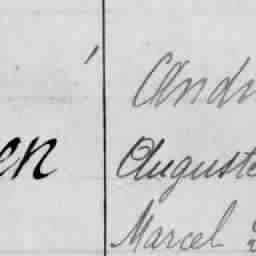 en
Andr
Auguste
Marcel